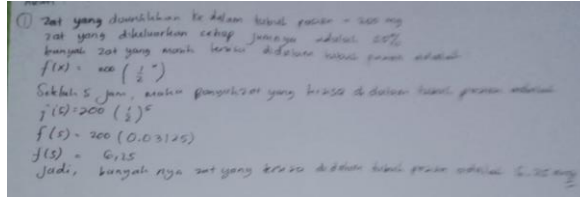 ① Zat yang dimasukkan ke dalam tubuh pasien = 200 mg
zat yang dikeluarkan setiap jamnya adalah
banyak zat yang masih tersisa didalam tubuh pasien adalah
f(x) = 200 (1/2 ˣ)
Setelah 5 jam, maka yang tersisa di dalam tubuh pasien adalah
f(5) = 200 (1/2)⁵
f(5) = 200 (0.03125)
f(5) = 6,25
Jadi, banyak nya zat yang tersisa didalam tubuh pasien adalah 6.25 mg